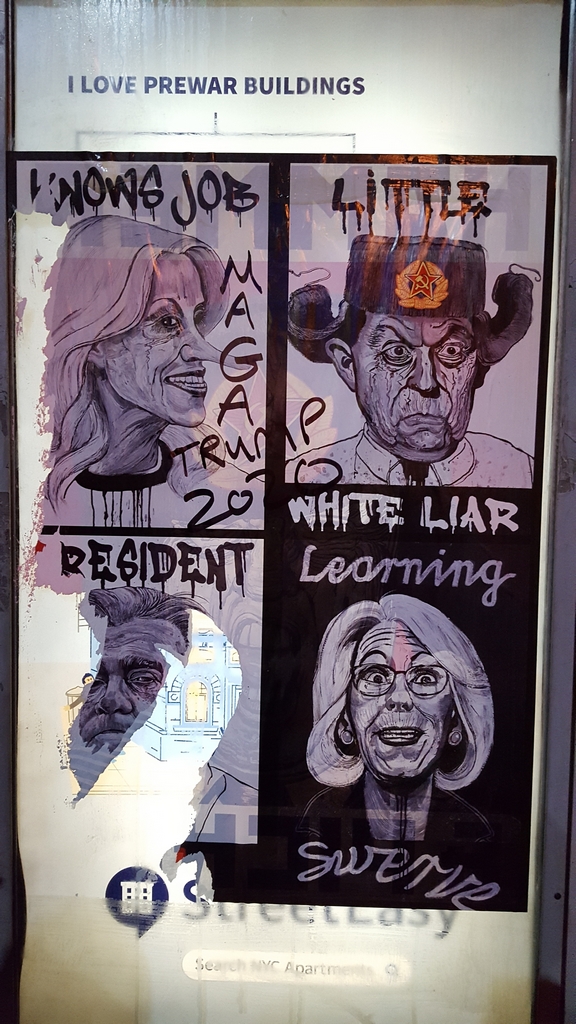 I LOVE PREWAR BUILDINGS
KNOWS JOB
MAGA
TRUMP
2020
LITTLE
WHITE LIAR
RESIDENT
Learning
Swerve
StreetEasy
Search NYC Apartments